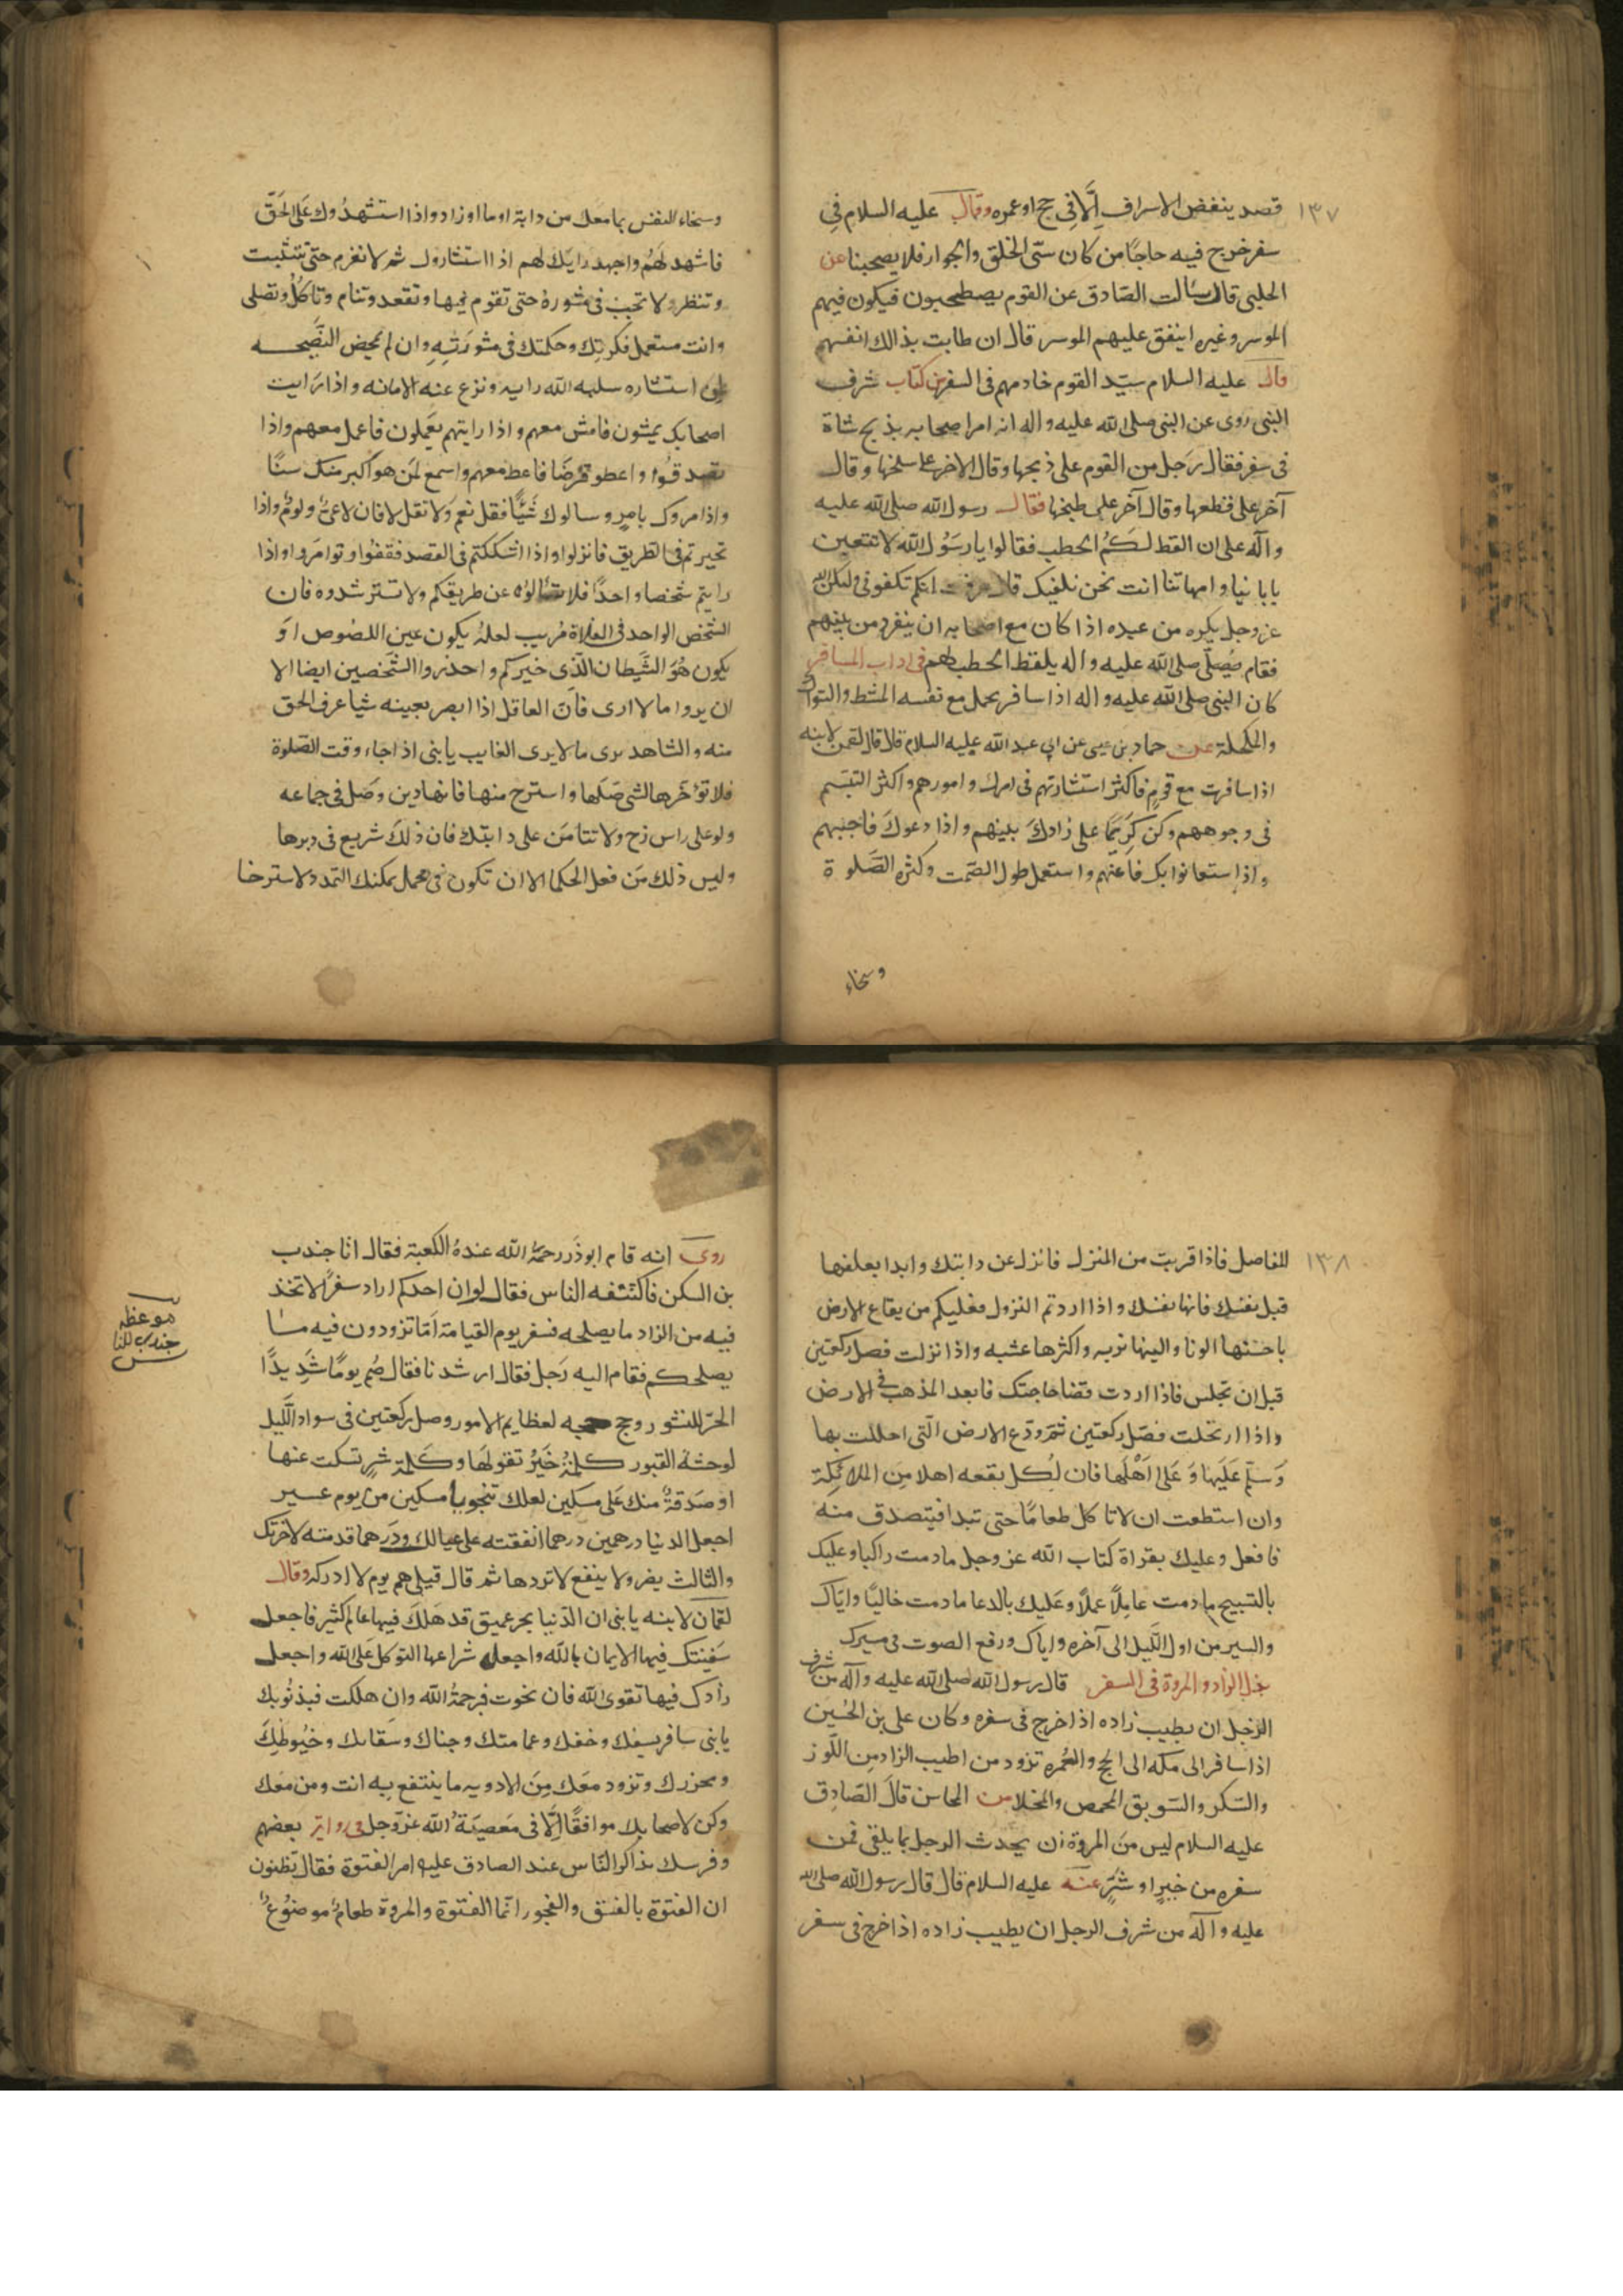 ١٣٧
قصد ينغض الاسراف اِلَّا في حج او عمره وقال عليه السلام فى
سفر خرج فيه حاجًا من كان سَّى الخلق والجوار فلا يصحبنا عن
الحلبى قال سئالت الصَّادق عن القوم يصطحبون فيكون فيهم
الموسر وغيره اينفق عليهم الموسر قال ان طابت بذالك انفسهم
قال عليه السلام سيّد القوم خادمهم فى السفر من كتاب شرف
النبى روى عن النبى صلى الله عليه واله انه امر اصحابه بذبح شاة
فى سفر فقال رَجل من القوم على ذبحها وقال الاخر علىّ سلخها وقال
آخر على قطعها وقال آخر على طبخها فقال رسول الله صلى الله عليه
وآله على ان القط لكُم الحطب فقالوا يا رسَوُل الله لا تتعبن
بابائنا وامهاتنا انت نحن نكفيك قال عرفت انكم تكفونى ولكن الله
عز وجل يكره من عبده اذا كان مع اصحابه ان ينفرد من بينهم
فقام صلى الله عليه واله يلقط الحطب لهم فى اداب المسافر
كان النبى صلى الله عليه واله اذا سافر يحمل مع نفسه المشط والسواك
والمكحلة عن حماد بن عيسى عن ابى عبد الله عليه السلام قال قال لقمن لابنه
اذا سافرت مع قومٍ فاكثر استشارتهم فى امرك وامورهم واكثر التبسَم
فى وجوههم وكن كريمًا على زادكَ بينهم واذا دعوكَ فاجبهم
واذا ستعانوا بك فاعنهم واستعمل طول الصّمت وكثره الصَّلوة
وسخاء
وسخاء النفس بما مَعَك من دابة او ما او زاد واذا استشهدُوك عَلى الحَقّ
فاشهد لَهمُ واجهد رايَك لهم اذا استشاروك ثم لا تغرم حتى تتثبت
وتنظر ولا تجب فى مشورهُ حتى تقوم فيها وتقعد وتنام وتاكُل وتصلى
وانت مستعمل فكرتك وحكمتك فى مشورَتِهِ وان لم يمحض النَّصيحه
لمن استشاره سلبه الله رايه ونزع عنه الامانه واذا رَايت
اصحابك يمشون فامش معهم واذا رايتهم يعَملون فاعمل معهم واذا
تصدقوا واعطو قرضًا فاعط معهم واسمع لمَن هو اكبر منك سنًا
واذا مروك بامرٍ وسالوك شَيًا فقل نعم وَلا تقل لا فان لا عىٌ ولومٌ واذا
تحيرتم فى الطريق فانزلوا واذا اشككتم فى القصد فقفوا وتوامَروا واذا
رايتم شخصا واحدًا فلا تسالوُه عن طريقكم ولا تستر شدوه فان
الشخص الواحد فى الفلاة مُريب لعلهُ يكون عين اللصُوص اوَ
يكون هُوَ الشَّيطان الَّذى خيركم واحذروا الشَّخصين ايضا الا
ان يروا ما لا ارى فانّ العاقل اذا ابصر بعينه شيا عرف الحق
منه والشاهد يرى ما لا يرى الغايب يا بنى اذا جَاء وقت الصَّلوة
فلا تؤخَرها لشى صَلّها واسترح منها فانها دين وصَل فى جماعه
ولو على راس زج ولا تتامَن على دابتّك فان ذلكَ شريع فى دبرها
وليس ذلك مَن فعل الحكما الا ان تكون فى محمل يمكنك التمدد ولاسترخا
١٣٨
للمفاصل فاذا قربتَ من المنزل فانزل عن دابتك وابدا بعلفها
قبل نفسَك فانها نفسَك واذا اردتم النزول فعليكم من بقاع الارض
باحسَنها الونا والينها تربه واكثرها عشبه واذا نزلت فصل ركعتين
قبل ان تجلس فاذا اردت قضا حاجتك فابعد المذهب فى الارض
واذا ارتحلت فصَل ركعتين ثمَ ودّع الارض الَّتى احللت بها
وَسَلّم عَلَيها وَعَلى اَهْلَها فان لِكل بقعه اهلا مِن الملائِكة
وان استطعت ان لا تاكل طعامًا حتى تبدا فتصدق منه
فافعل وعليك بقراة كتاب الله عز وجل ما دمت راكبا وعليك
بالتسبيح ما دمت عامِلًا عملًا وعَليك بالدعا ما دمت خاليًا وايّاك
والسير من اول اللَيل الى آخره واياك ورفع الصوت فى مسيرك
بذل الزاد والمروة فى السفر قال رسول الله صلى الله عليه وآله من شرف
الرّجل ان يطيب زاده اذا خرج فى سفره وكان على بن الحُسَين
اذا سافر الى مكه الى الحج والعُمره تزود من اطيب الزاد مِن اللَّوز
والسّكر والسّويق المحمص والمحلا من المحاسن قالَ الصَّادِق
عليه السلام ليس منَ المروة ان يحدث الرجل بما يلقى فى
سفره من خيرٍ او شرٍّ عنه عليه السلام قال قال رسول الله صلى الله
عليه وآله من شرف الرجل ان يطيب زاده اذا خرج فى سفر
روى انه قام ابو ذَر رحمَهُ الله عندهُ الكعبة فقال انا جندب
بن السكن فاكتنفه الناس فقال لو ان احدكم اراد سفرًا لاتخذ
فيه من الزاد ما يصلحه فسفر يوم القيامة اَمَا تزودون فيه ما
يصلحكم فقام اليه رَجل فقال ارشدنا فقال صُم يومًا شَدِيدًا
الحرّ للنشور وحج حجه لعظايم الامور وصل ركعتين فى سواد اللَّيل
لوحشهُ القبور كلمة خَيرٌ تقولهَا وكَلمة شرٍ تسكت عنها
او صَدقةٌ منك عَلى مسكين لعلك تنجو بها مسكين من يوم عسير
اجعل الدنيا درهمين درهما انفقته على عيالك ودَرهما قدمته لاخرتك
والثالث يضر ولا ينفع لا تردها ثم قال قيلى هم يوم لا ادركه وقال
لقمان لابنه يا بنى ان الدّنيا بحر عميق قد هَلكَ فيها عالم كثير فاجعل
سَفينتك فيها الايمان بالله واجعل شراعها التوكل عَلى الله واجعل
زادك فيها تقوى الله فان نجوت فبرحمةُ الله وان هلكت فبذنوبك
يا بنى سافر بسيفك وخفك وعمامتك وحبالك وسقائك وخيُوطكِ
ومخرزك وتزود معَك مِنَ الادويه ما ينتفع بِه انت ومن مَعَك
وكن لاصحابك موافقًا اِلَّا فى مَعصيَةُ الله عزّ وَجل فى رواية بعضهم
وفرسك تذاكر النّاس عند الصادق عليه امر الفتوة فقال تظنون
ان الفتوّة بالفسَق والفجور انّما الفتوّة والمروة طعامٌ موضوُعٌ
موعظه
جندب للنا
س